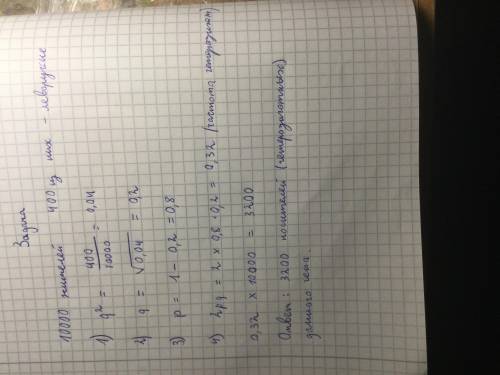 Задача
10000 жителей 400 из них - леворукие
1) q² = 400/10000 = 0,04
2) q = √0,04 = 0,2
3) p = 1 - 0,2 = 0,8
4) 2pq = 2 × 0,8 · 0,2 = 0,32 (частота гетерозигот)
0,32 × 10000 = 3200
Ответ: 3200 носителей (гетерозиготных)
данного гена.